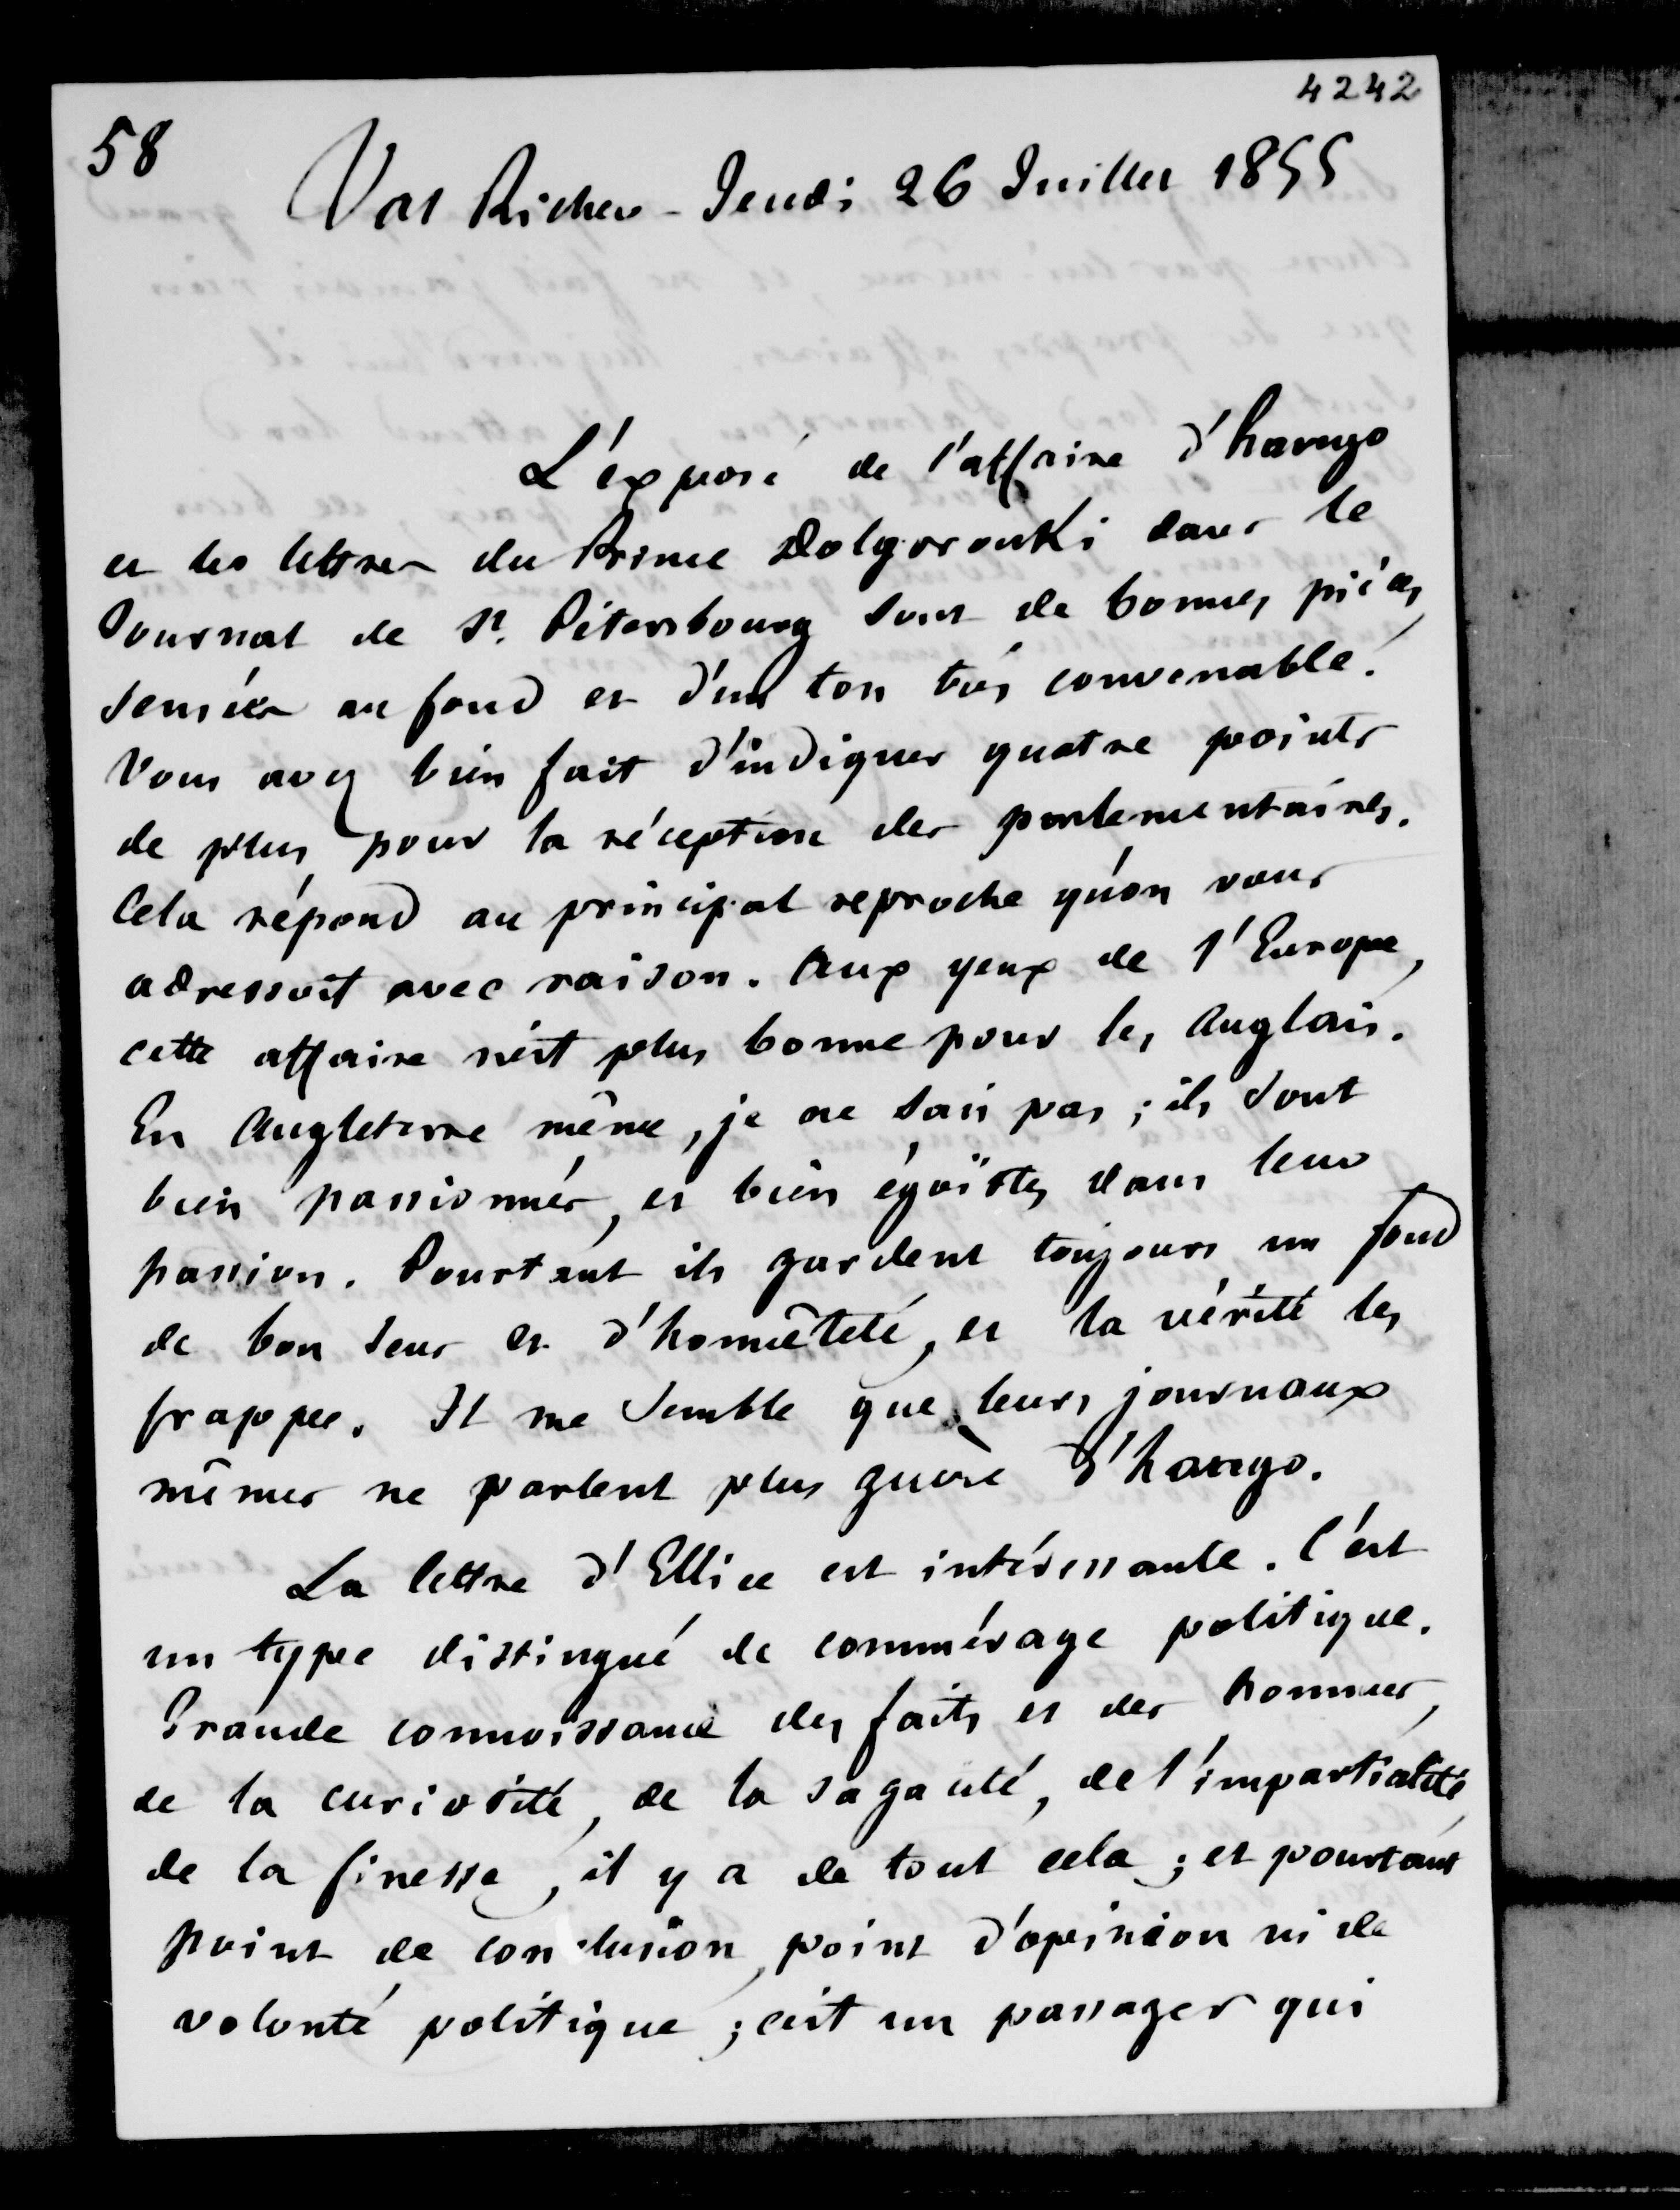 4242
58
Val Richer - Jeudi 26 Juillet 1855
L'exposé de l'affaire d'hango
et les lettres du Prince Dolgorouki dans le
Journal de St. Pétersbourg sont de bonnes pièces,
sensées au fond et d'un ton très convenable.
Vous avez bien fait d'indiquer quatre points
de plus pour la réception des parlementaires.
Cela répond au principal reproche qu'on vous
adressoit avec raison. Aux yeux de l'Europe,
cette affaire n'est plus bonne pour les Anglais.
En Angleterre même, je ne sais pas ; ils sont
bien passionnés, et bien égoïstes dans leur
passion. Pourtant ils gardent toujours un fond
de bon sens et d'honnêteté, et la vérité les
frappe. Il me semble que leurs journaux
mêmes ne parlent plus guère d'hango.
La lettre d'Ellice est intéressante. C'est
un type distingué de commérage politique.
Grande connoissance des faits et des hommes,
de la curiosité, de la sagacité, de l'impartialité,
de la finesse, il y a de tout cela ; et pourtant
point de conclusion, point d'opinion ni de
volonté politique ; c'est un passager qui